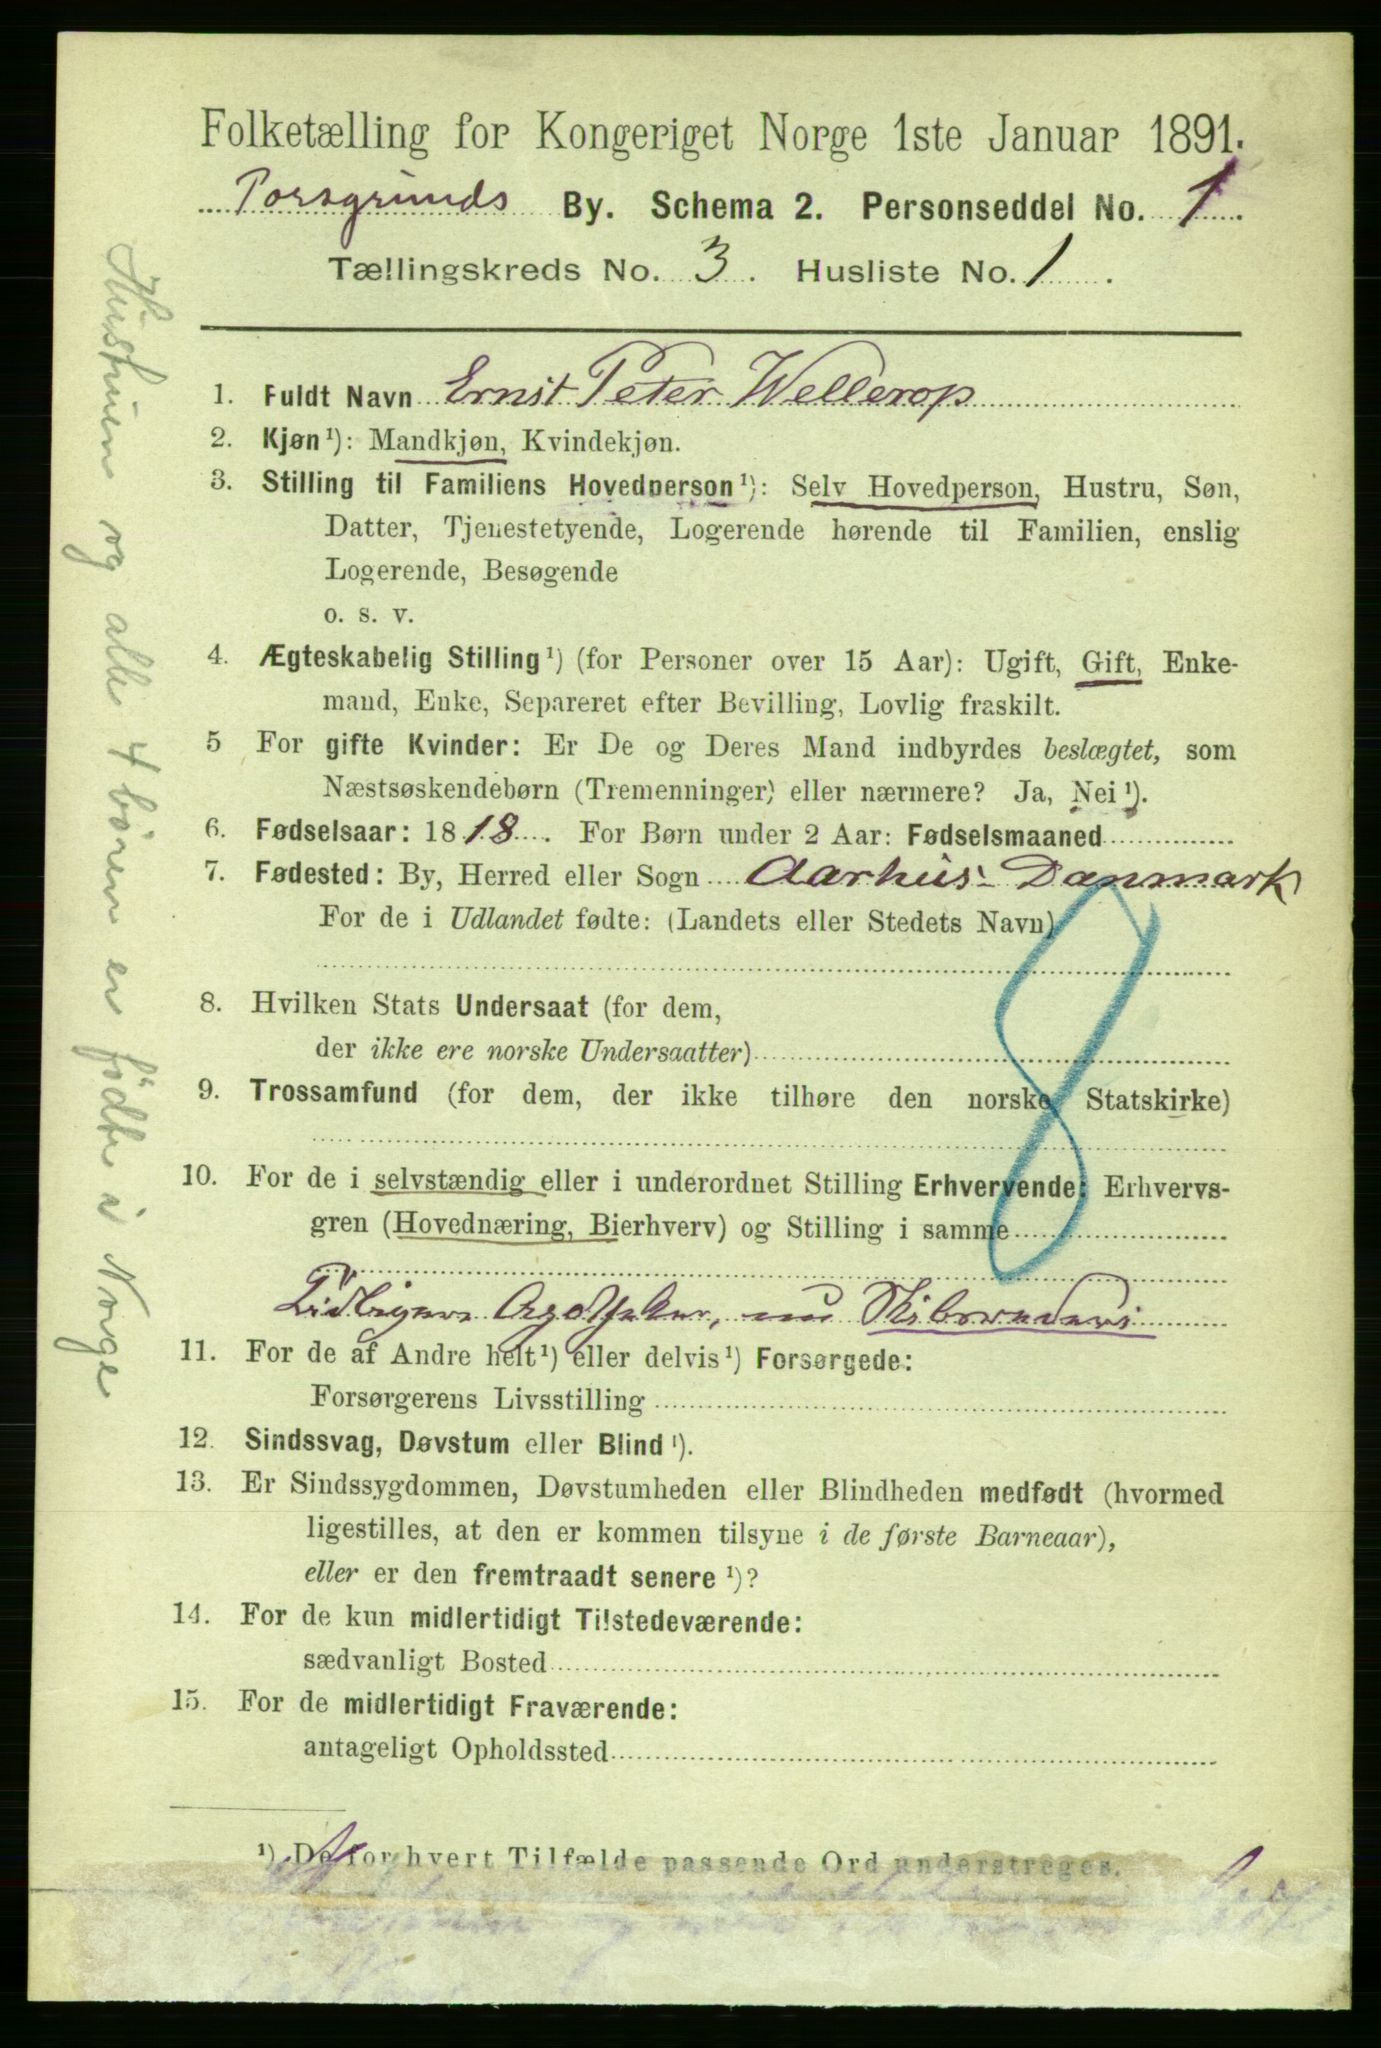 Folketælling for Kongeriget Norge 1ste Januar 1891.
Porsgrunds By. Schema 2. Personseddel No. 1.
Tællingskreds No. 3. Husliste No. 1.
1. Fuldt Navn Ernst Peter Wellerop
2. Kjøn¹): Mandkjøn, Kvindekjøn.
3. Stilling til Familiens Hovedperson¹): Selv Hovedperson, Hustru, Søn,
Datter, Tjenestetyende, Logerende hørende til Familien, enslig
Logerende, Besøgende
o. s. v.
4. Ægteskabelig Stilling¹) (for Personer over 15 Aar): Ugift, Gift, Enke-
mand, Enke, Separeret efter Bevilling, Lovlig fraskilt.
5 For gifte Kvinder: Er De og Deres Mand indbyrdes beslægtet, som
Næstsøskendebørn (Tremenninger) eller nærmere? Ja, Nei¹).
6. Fødselsaar: 1818. For Børn under 2 Aar: Fødselsmaaned
7. Fødested: By, Herred eller Sogn Aarhus- Danmark
For de i Udlandet fødte: (Landets eller Stedets Navn)
8. Hvilken Stats Undersaat (for dem,
der ikke ere norske Undersaatter)
9. Trossamfund (for dem, der ikke tilhøre den norske Statskirke)
10. For de i selvstændig eller i underordnet Stilling Erhvervende: Erhvervs-
gren (Hovednæring, Bierhverv) og Stilling i samme
Tidligere Apotheker, nu Skibsrederi
11. For de af Andre helt¹) eller delvis¹) Forsørgede:
Forsørgerens Livsstilling
12. Sindssvag, Døvstum eller Blind¹).
13. Er Sindssygdommen, Døvstumheden eller Blindheden medfødt (hvormed
ligestilles, at den er kommen tilsyne i de første Barneaar),
eller er den fremtraadt senere¹)?
14. For de kun midlertidigt Tilstedeværende:
sædvanligt Bosted
15. For de midlertidigt Fraværende:
antageligt Opholdssted
¹) De for hvert Tilfælde passende Ord understreges.
Hustruen og alle 4 börn er födte i Norge
8